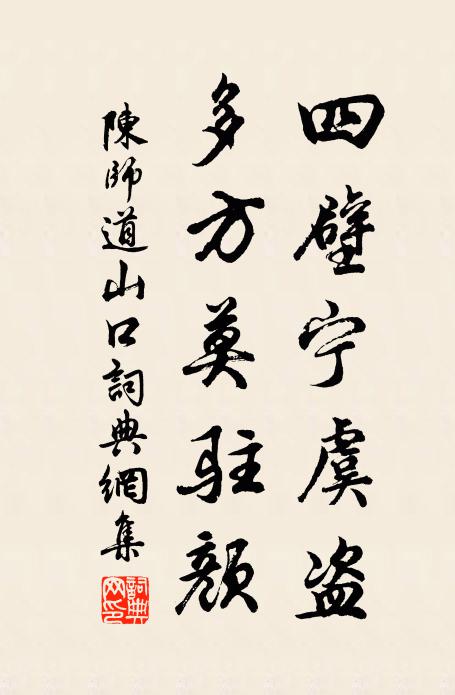 四壁宁虞盗
多方莫驻颜
陳師道山口詞典網集
詞典网印